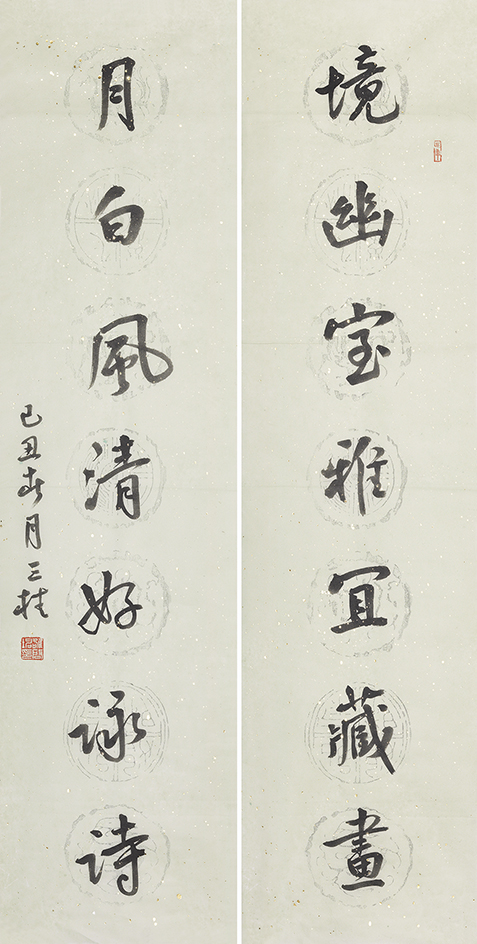 境幽室雅宜藏畫
月白風清好詠詩
己丑春月三桂